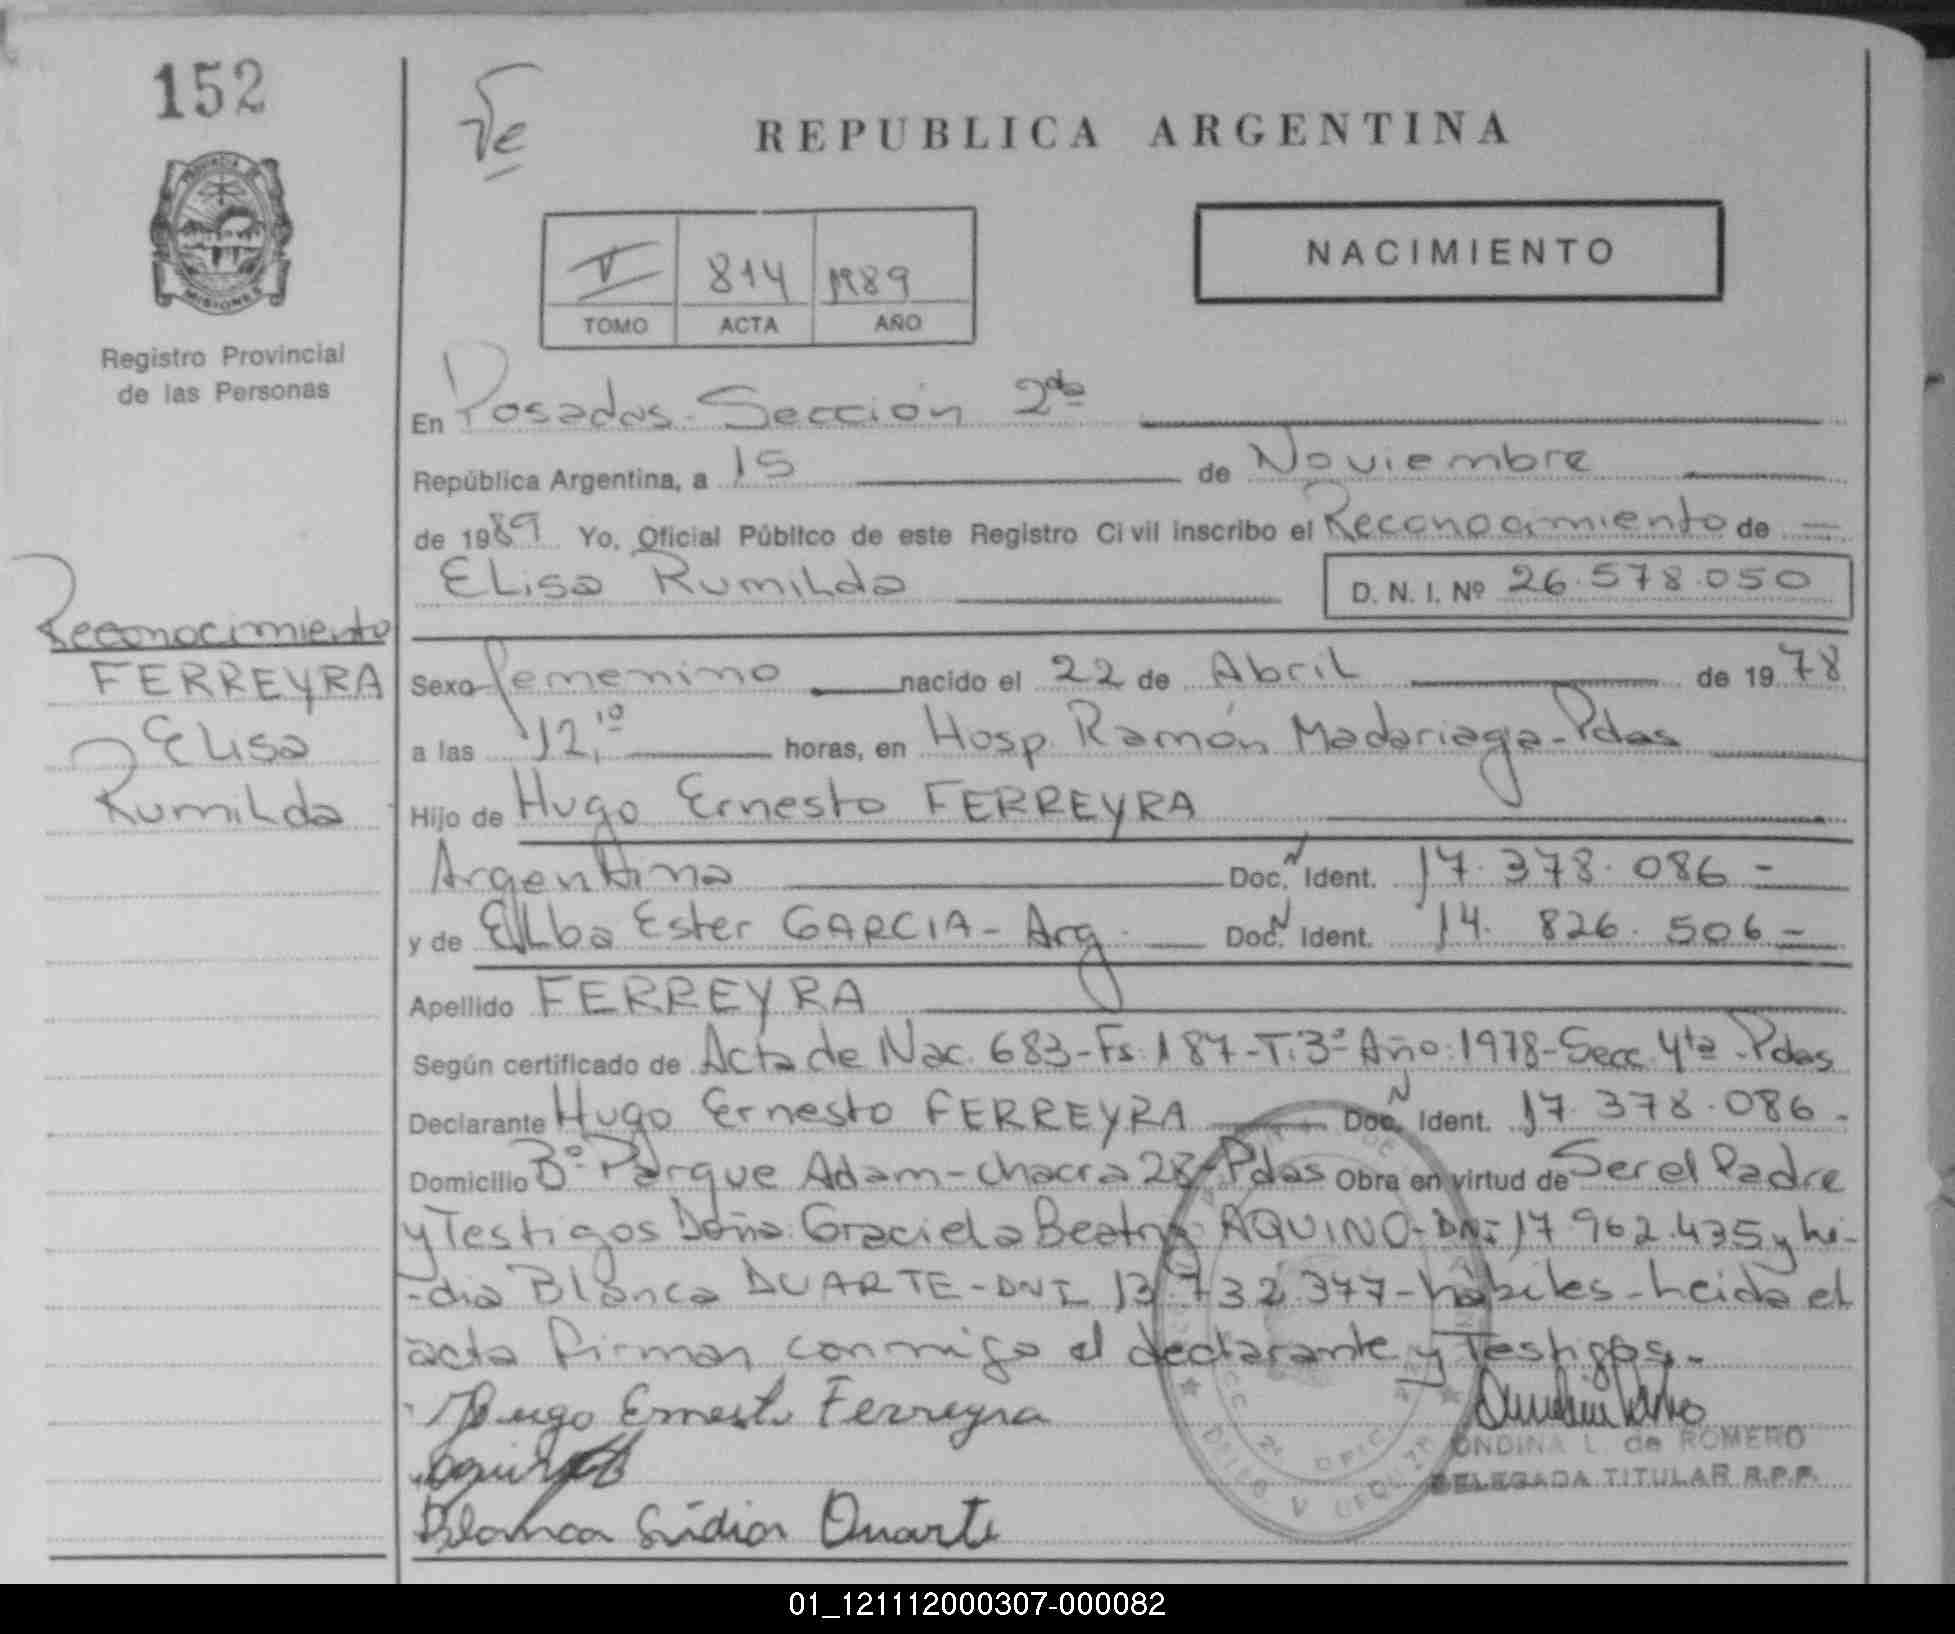 152
REPUBLICA ARGENTINA
PROVINCIA DE
MISIONES
NACIMIENTO
V 814 1989
TOMO ACTA AÑO
Registro Provincial
de las Personas
En Posadas-Sección 2da
República Argentina, a 15 de Noviembre
de 1989 Yo, Oficial Público de este Registro Civil inscribo el Reconocimiento de
Elisa Rumilda D. N. I. Nº 26.578.050
Reconocimiento
FERREYRA
Elisa
Rumilda
Sexo femenino nacido el 22 de Abril de 1978
a las 12,10 horas, en Hosp. Ramón Madariaga-Pdas
Hijo de Hugo Ernesto FERREYRA
Argentina Doc. N Ident. 17.378.086-
y de Elba Ester GARCIA-Arg. Doc. N Ident. 14.826.506-
Apellido FERREYRA
Según certificado de Acta de Nac. 683-Fs.187-T.3º Año:1978-Secc. 4ta-Pdas
Declarante Hugo Ernesto FERREYRA Doc. N Ident. 17.378.086-
Domicilio Bº Parque Adam-chacra 28-Pdas Obra en virtud de Ser el Padre
y Testigos Doña: Graciela Beatriz AQUINO-DNI 17.962.435 y Li-
-dia Blanca DUARTE-DNI 13.732.377-hábiles-Leida el
acta firman conmigo el declarante y Testigos.-
Hugo Ernesto Ferreyra
ONDINA L. de ROMERO
DELEGADA TITULAR R.P.P.
Blanca Lidia Duarte
01_121112000307-000082